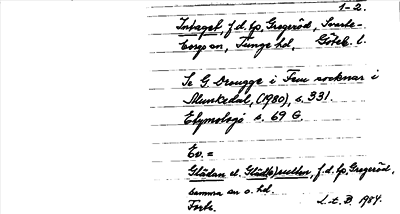 1-2.
Intaget, f.d. lp, Gregeröd, Svarte-
borgs sn, Tunge hd, Göteb. l.
Se G. Drougge i Fem socknar i
Munkedal, (1980), s. 331.
Etymologi s. 69 G.
Ev. =
Glädan el. Glädb)sulten, f.d. lp, Gregeröd,
samma sn o. hd.
Forts. L.t. B. 1984.